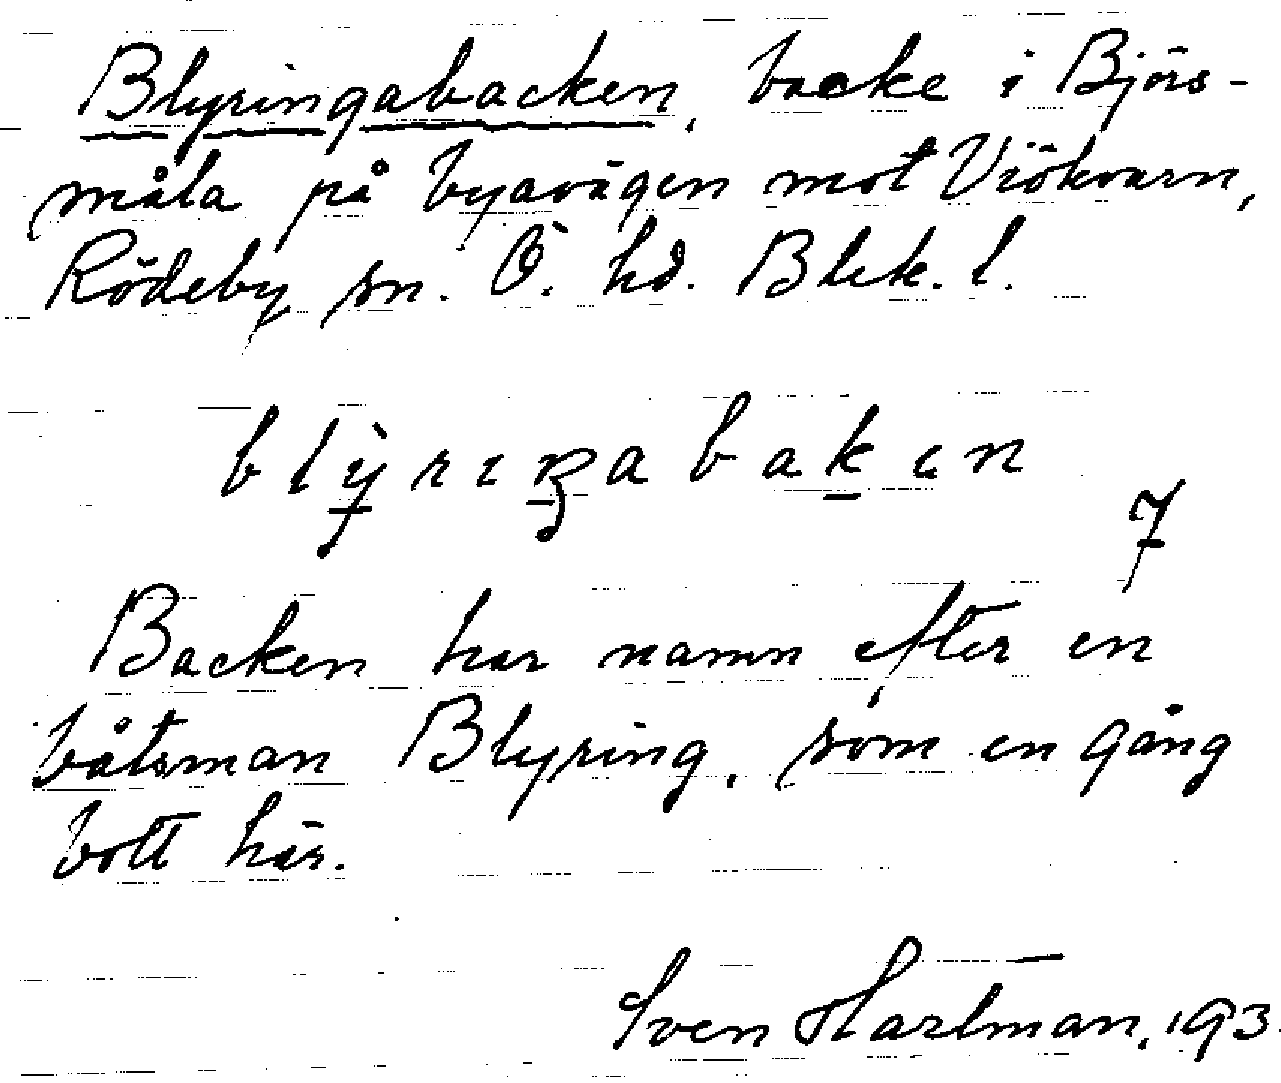 Blyringabacken, backe i Björs-
måla på byavägen mot Viökvarn,
Rödeby sn. Ö. hd. Blek. l.
blỳriŋabaken
7
Backen har namn efter en
båtsman Blyring, som en gång
bott här.
Sven Hartman, 193